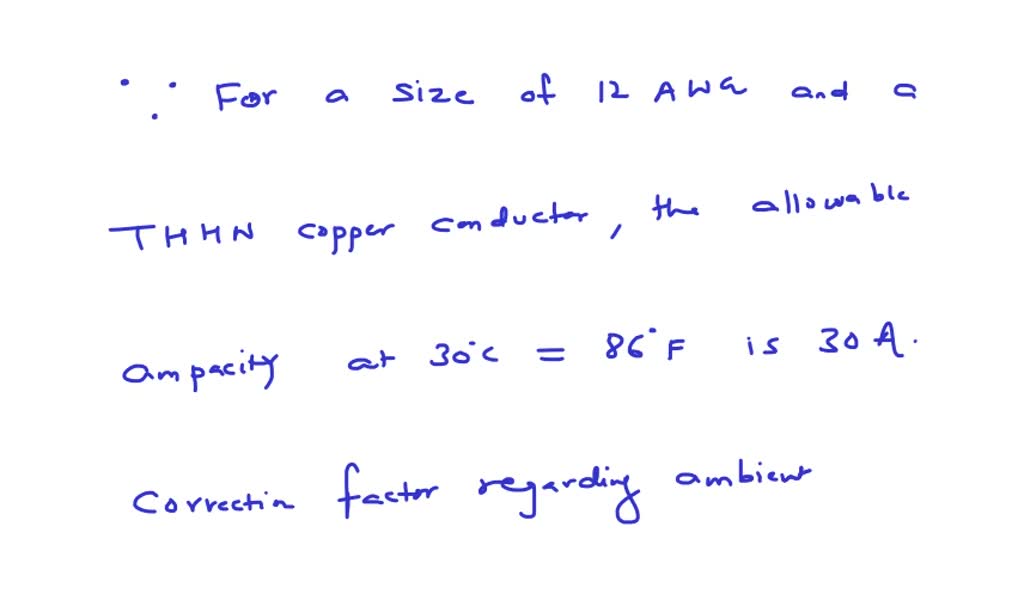 ∵ For a size of 12 AWG and a
THHN copper conductor, the allowable
ampacity at 30°C = 86°F is 30A.
Correctin factor regarding ambient